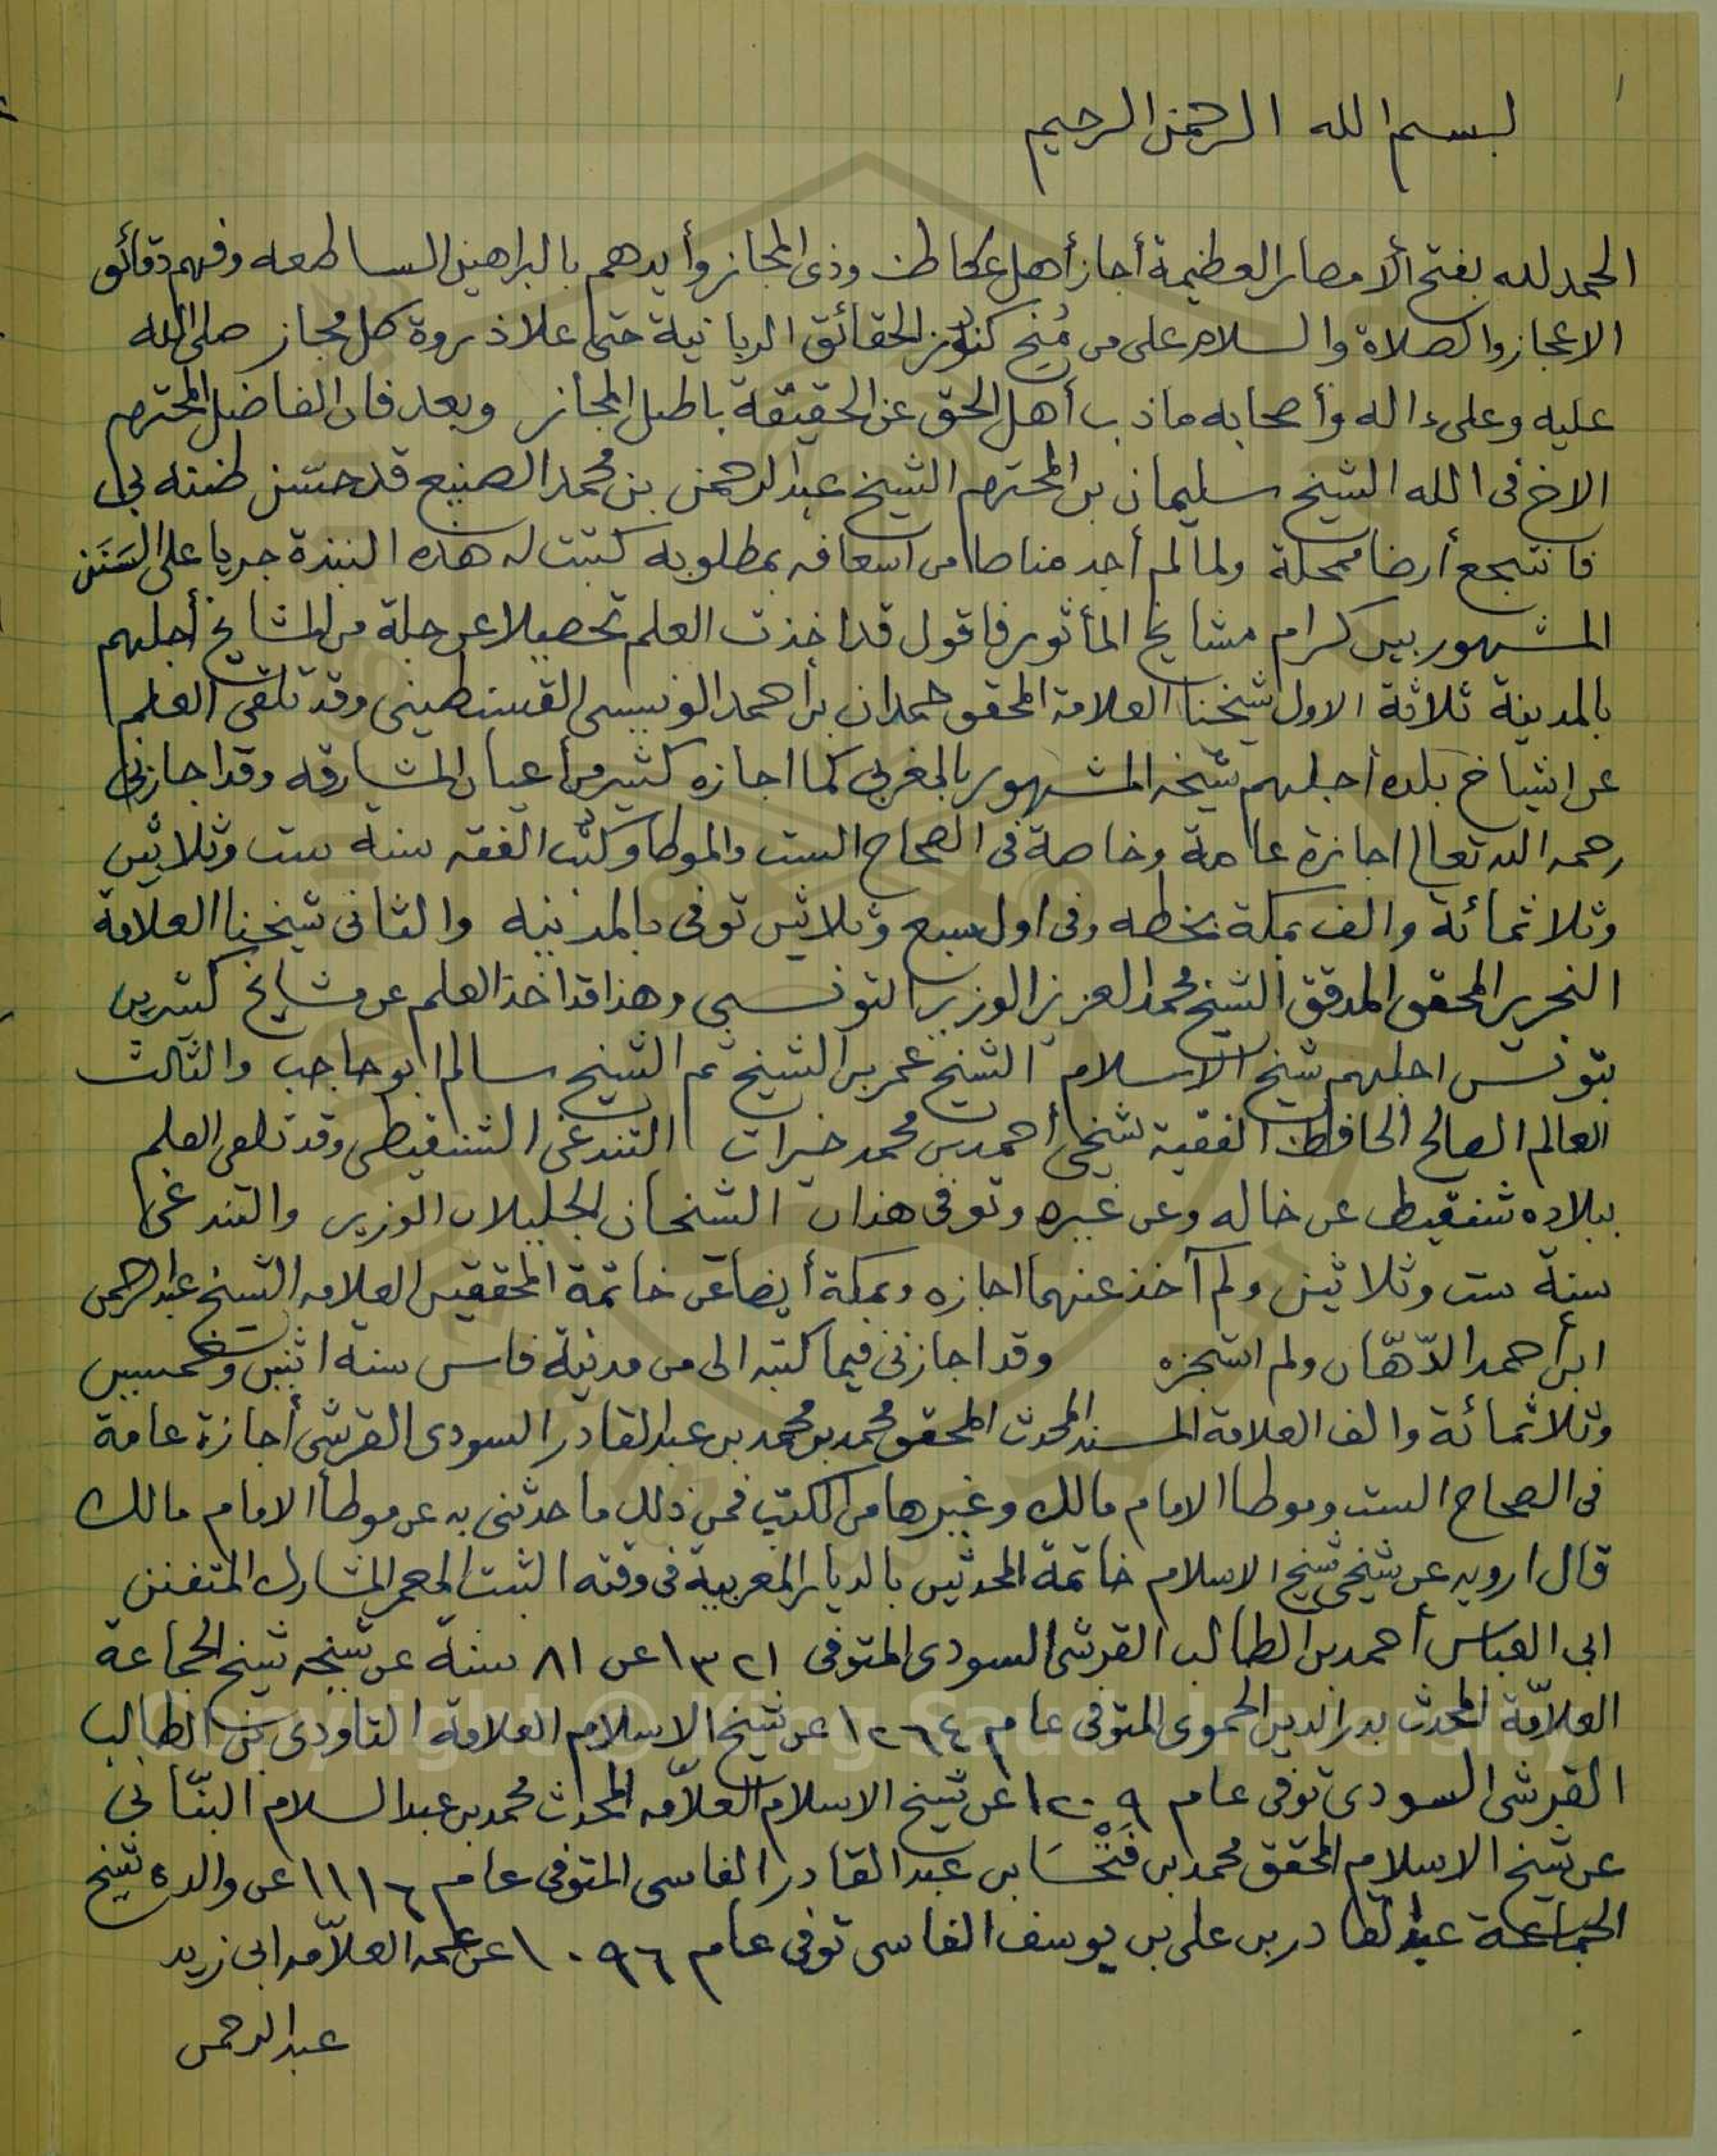 ١
بسم الله الرحمن الرحيم
الحمد لله بفتح الأمصار العظيمة أجاز أهل عكاظ وذى المجاز وأيدهم بالبراهين الساطعه وفهم دقائق
الاعجاز والصلاة والسلام على من مُنِح كنوز الحقائق الربانية حتى علا ذروة كل مجاز صلى الله
عليه وعلى ءاله وأصحابه ما ذب أهل الحق عن الحقيقة باطل المجاز وبعد فان الفاضل المحترم
الاخ فى الله الشيخ سليمان بن المحترم الشيخ عبد الرحمن بن محمد الصنيع قد حسن ظنه بى
فانتجع أرضا ممحلة ولما لم أجد مناصا من اسعافه بمطلوبه كتبت له هذه النبذة جريا على السَنَن
المشهور بين كرام مشايخ المأثور فاقول قد اخذت العلم تحصيلا عن جلة من المشايخ أجلهم
بالمدينة ثلاثة الاول شيخنا العلامة المحقق حمدان بن أحمد الونيسى القسنطينى وقد تلقى العلم
عن اشياخ بلده أجلهم شيخه المشهور بالمغربى كما اجازه كثير من أعيان المشارقه وقد اجازنى
رحمه الله تعالى اجازة عامة وخاصة فى الصحاح الست والموطا وكتب الفقه سنة ست وثلاثين
وثلاثمائة والف بمكة بخطه وفى اول سبع وثلاثين توفى بالمدينه والثانى شيخنا العلامة
النحرير المحقق المدقق الشيخ محمد العزيز الوزير التونسى وهذا قد اخذ العلم عن مشايخ كثيرين
بتونس اجلهم شيخ الاسلام الشيخ عمر بن الشيخ ثم الشيخ سالم ابو حاجب والثالث
العالم الصالح الحافظ الفقيه شيخى أحمد بن محمد خيرات التندغى الشنقيطى وقد تلقى العلم
ببلاده شنقيط عن خاله وعن غيره وتوفى هذان الشيخان الجليلان الوزير والتندغى
سنة ست وثلاثين ولم آخذ عنهما اجازه وبمكة أيضا عن خاتمة المحققين العلامه الشيخ عبد الرحمن
ابن أحمد الدّهّان ولم استجزه وقد اجازنى فيما كتبه الى من مدينة فاس سنة اثنين وخمسين
وثلاثمائة والف العلامة المسند المحدث المحقق محمد بن محمد بن عبد القادر السودى القرشى أجازة عامة
فى الصحاح الست وموطا الامام مالك وغيرها من الكتب فمن ذلك ما حدثنى به عن موطأ الامام مالك
قال ارويه عن شيخى شيخ الاسلام خاتمة المحدثين بالديار المغربية فى وقته الثبت المعمر المشارك المتفنن
ابى العباس أحمد بن الطالب القرشى السودى المتوفى ١٣٢١ عن ٨١ سنة عن شيخه شيخ الجماعة
العلاّمة المحدث بدر الدين الحموى المتوفى عام ١٢٦٤ عن شيخ الاسلام العلامة التاودى بن الطالب
القرشى السودى توفى عام ١٢٠٩ عن شيخ الاسلام العلاّمه المحدث محمد بن عبد السلام البنّانى
عن شيخ الاسلام المحقق محمد بن عبد القادر الفاسى المتوفى عام ١١١٦ عن والده شيخ
الجماعة عبد القادر بن على بن يوسف الفاسى توفى عام ١٠٩٦ عن عمه العلاّمه ابى زيد
عبد الرحمن
Copyright © King Saud University